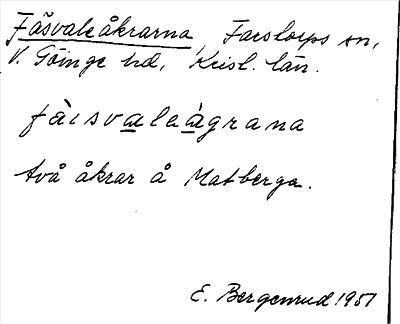 Fäsvaleåkrarna, Farstorps sn,
V. Göinge hd, Krisl. län.
fàɩsvaleàgrana
två åkrar å Matberga.
E. Bergenrud 1951